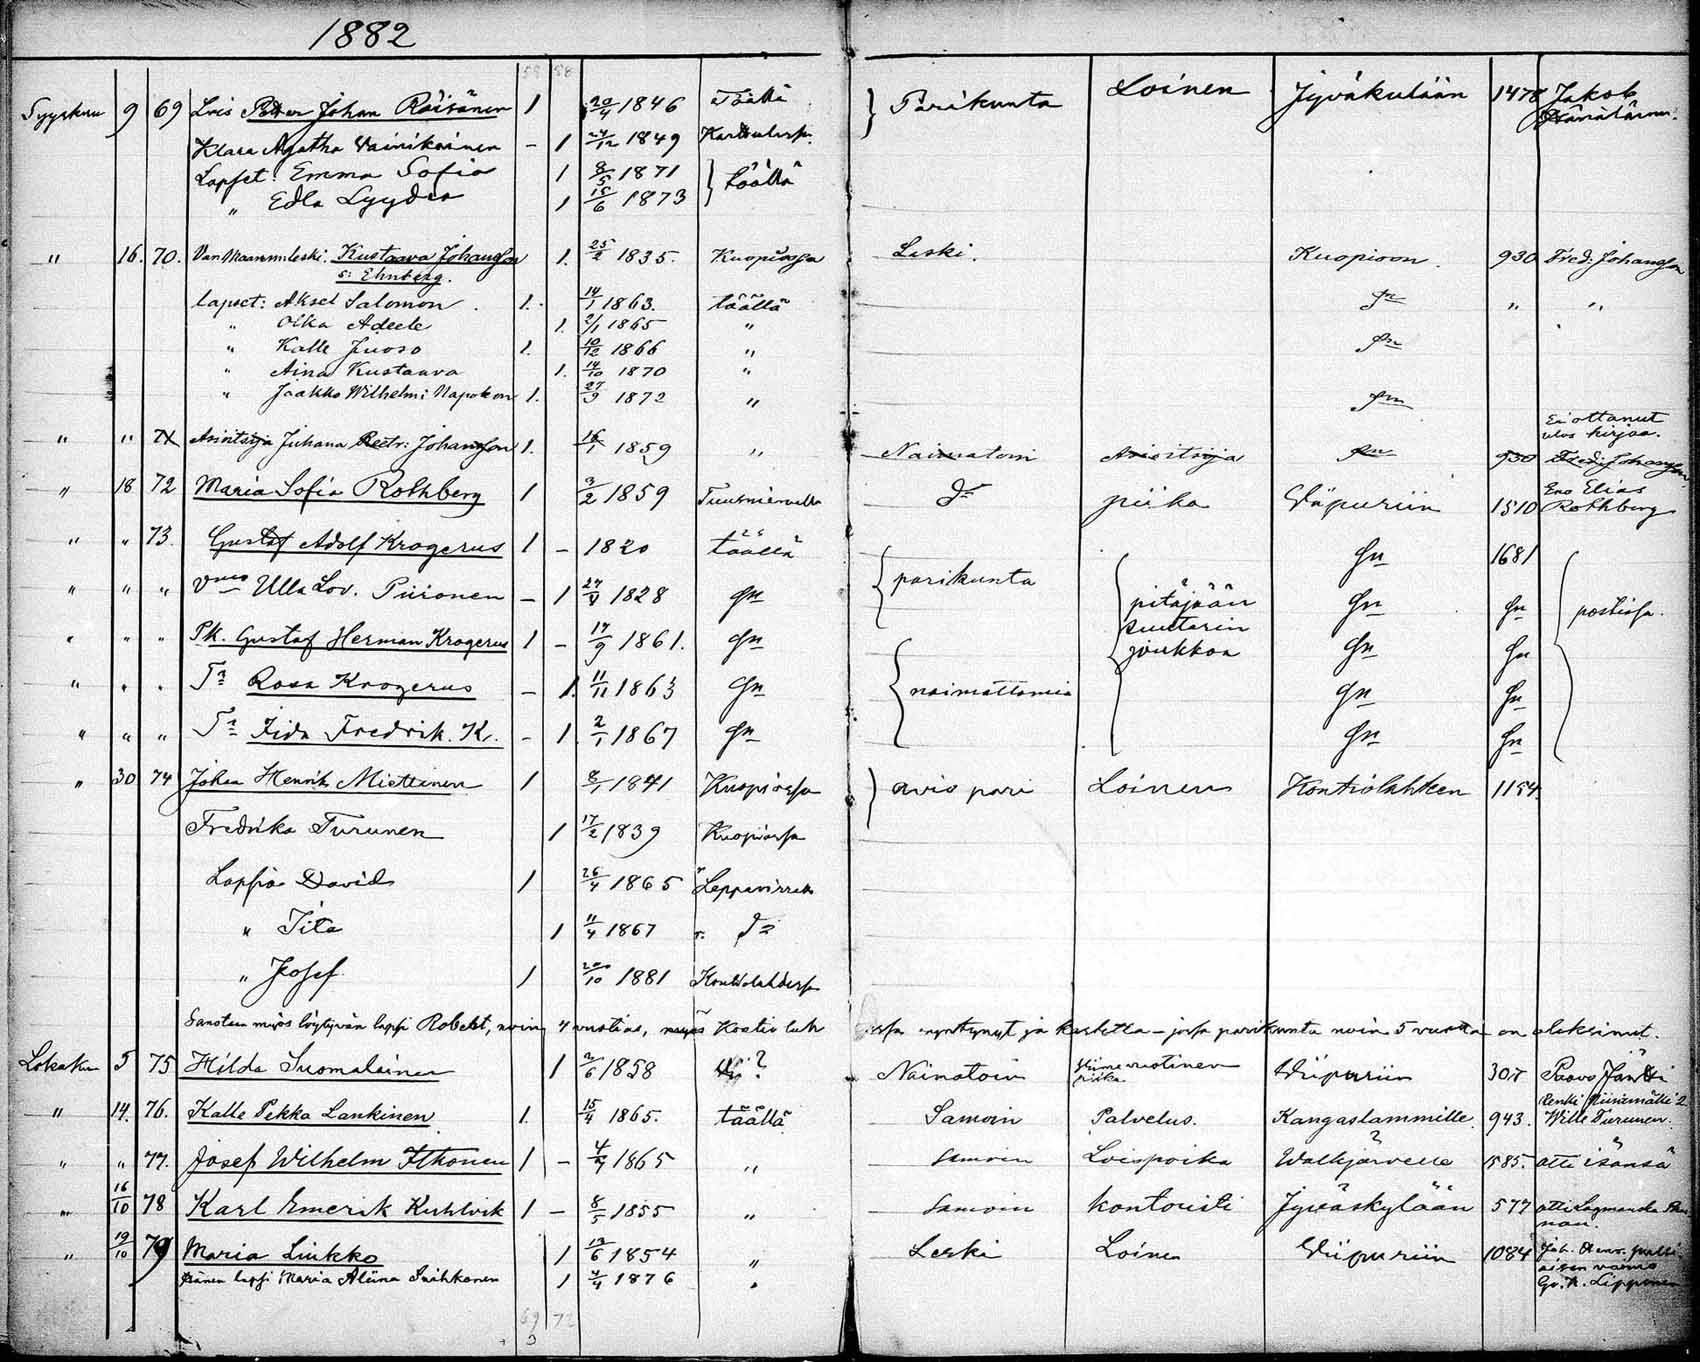 1882
58 58
Syyskuu 9 69 Lois Petter Johan Räisänen 1 20/4 1846 Täällä } Pariskunta Loinen Jyväkulään 1478 Jakob
Klara Agatha Vainikainen - 1 24/12 1849
Lapset: Emma Sofia 1 8/5 1871 } täällä
" Edla Lyydia 1 15/6 1873
" 16. 70. Van Maanm. leski: Kustaava Johansson 1. 25/2 1835. Kuopiossa Leski. Kuopioon. 930 Fred: Johansson
s: Ehnberg.
lapset: Aksel Salomon. 1. 14/1 1863. täällä Sn " "
" Olka Adeele 1. 2/1 1865 "
" Kalle Juoso 1. 10/12 1866 " Sn
" Aina Kustaava 1. 14/10 1870 "
" Jaakko Wilhelmi Napoleon 1. 27/9 1872 " Sn
Ei ottanut
ulos kirjaa.
" " 71 Juhana Johansson 1. 16/1 1859 " Naimatoin Sn 930 Fredr. Johansson
" 18 72 Maria Sofia Rothberg 1 3/2 1859 Tuusniemellä Do piika Viipuriin 1510 Eno Elias
Rothberg
" " 73. Gustaf Adolf Krogerus 1 - 1820 täällä { parikunta { pitäjään Sn 1681 } postissa.
" " " Vmo Ulla Lov. Piironen - 1 1828 Sn suutarin Sn Sn
" " " Pk. Gustaf Herman Krogerus 1 - 17/9 1861. Sn { naimattomia joukkoa Sn Sn
" " " Tr Rosa Krogerus - 1. 11/11 1863 Sn Sn Sn
" " " Tr Iida Fredrik. K. - 1. 2/1 1867 Sn Sn Sn
" 30 74 Johan Henrik Miettinen 1 8/1 1841 Kuopiossa } avio pari Loinen Kontiolahteen 1154.
Fredrika Turunen 1 17/2 1839 Kuopiossa
Lapsia David 1 26/4 1865 Leppävirralla
" Iita 1 11/4 1867 " Do
" Josef 1 20/10 1881 Kontiolahdessa
Sanotaan myös löytyvän lapsi Robert, noin 4 vuotias, myös Kontiolahdessa syntynyt ja kastettu - jossa parikunta noin 5 vuotta on oleksinut.
Lokakuu 5 75 Hilda Suomalainen 1 2/6 1858 ? Naimatoin piika Viipuriin 307 Paavo Jäntti
" 14. 76. Kalle Pekka Lankinen 1. 15/4 1865. täällä Samoin Palvelus. Kangaslammille. 943. Renki Niinimäki 2
Wille Turunen.
" " 77. Josef Wilhelm Itkonen 1 - 1865 " Samoin Loispoika Walkjärvelle 1585. otti isänsä
" 16/10 78 Karl Emerik Kuhlvik 1 - 8/5 1855 " Samoin kontoristi Jyväskylään 577 otti
" 19/10 79 Maria Liukko 1 13/6 1854 " Leski Loinen Viipuriin 1084 Joh. Henr.
hänen lapsi Maria Aliina 1 4/4 1876 " vaimo
Lipponen
69 72